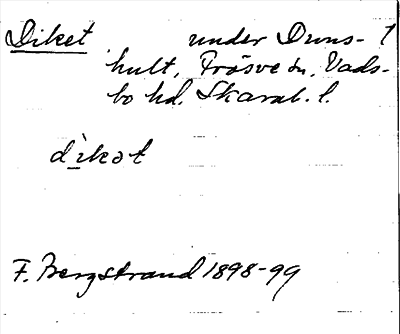 Diket under Duns- 1
hult, Fräsve sn, Vads-
bo hd. Skarab. l.
dikət
F. Bergstrand 1898-99